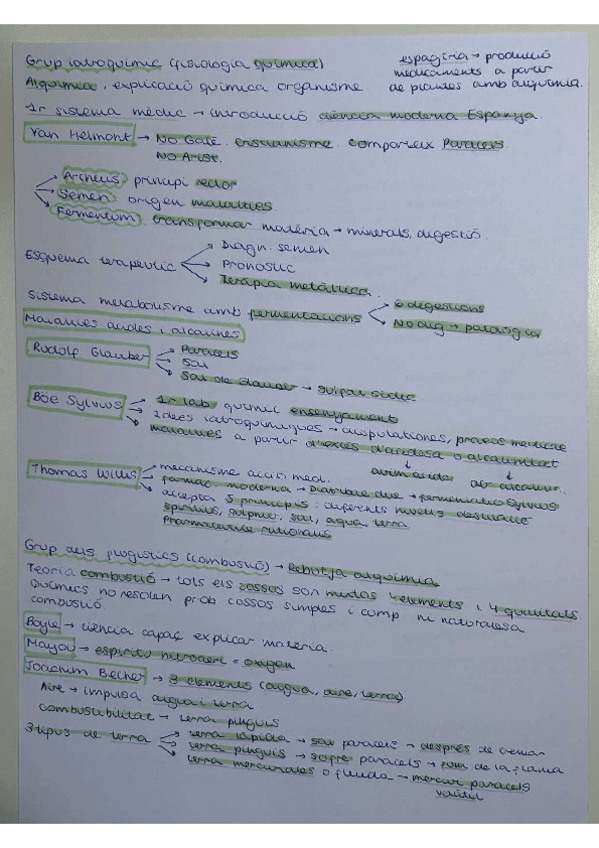 Grup iatroquímic (fisiologia química)
espagíria → producció
medicaments a partir
de plantes amb alquímia.
Alquímia, explicació química organisme
1r sistema mèdic → introducció ciència moderna Espanya.
Van Helmont → No Galè. Cristianisme. Comparteix Paracels
No Arist.
Archeus, principi rector
Semen origen malalties
Fermentum, transformar matèria → minerals, digestió
Esquema terapèutic
Diagn. semen
Pronòstic
Teràpia metàl·lica.
Sistema metabolisme amb fermentacions
6 digestions
No dig → patologia
Malalties àcides i alcalines
Rudolf Glauber
Paracels
Sal
Sal de Glauber → sulfat sòdic
Böe Sylvius
1r lab. químic ensenyament
Idees iatroquímiques → disputationes, praxeos medicae
malalties a partir d'excés d'acidesa o alcalinitat
Thomas Willis
mecanisme acció med.
farmac. moderna → Diatribae duae → fermentatio Sylvius
accepta 5 principis: diferents nivells
spiritus, sulphur, sal, aqua, terra
Pharmaceutice rationalis
Grup dels flogístics (combustió) → Rebutja alquímia
Teoria combustió → tots els cossos són mixtos 4 elements i 4 qualitats
Químics no resolen prob cossos simples i comp ni naturalesa
combustió.
Boyle → ciència capaç explicar matèria.
Mayow → espíritu nitroaeri = oxigen
Joachim Becher → 3 elements (aigua, aire, terra)
Aire → impulsa aigua i terra
Combustibilitat → terra pinguis
3 tipus de terra
terra lapida → sal paracels → després de cremar
terra pinguis → sofre paracels → fum de la flama
terra mercuriales o fluida → mercuri paracels
volàtil